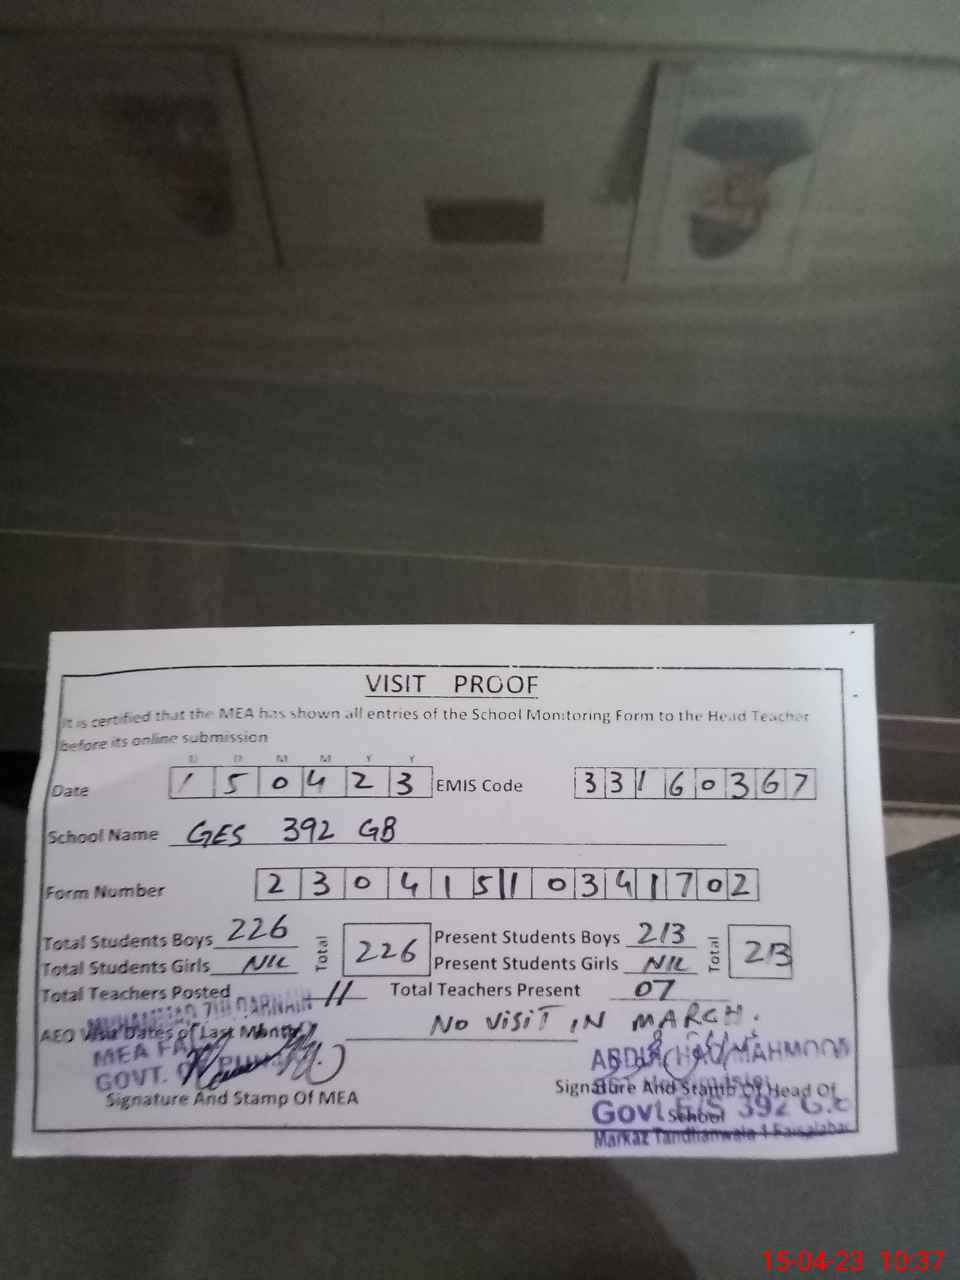 VISIT PROOF
It is certified that the MEA has shown all entries of the School Monitoring Form to the Head Teacher
before its online submission
D D M M Y Y
Date 1 5 0 4 2 3 EMIS Code 3 3 1 6 0 3 6 7
School Name GES 392 GB
Form Number 2 3 0 4 1 5 1 0 3 4 1 7 0 2
Total Students Boys 226 Total 226 Present Students Boys 213 Total 213
Total Students Girls NIL Present Students Girls NIL
Total Teachers Posted 11 Total Teachers Present 07
MUHAMMAD ZULQARNAIN
AEO Visit Dates of Last Month NO VISIT IN MARCH.
MEA
GOVT. OF PUNJAB
Signature And Stamp Of MEA
MAHMOOD
Signature And Stamp Of Head Of
School
Govt. E/S 392 G.B
Markaz Tandlianwala 1 Faisalabad
15-04-23 10:37